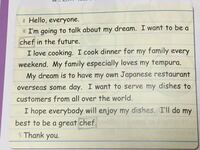 Hello, everyone.
I'm going to talk about my dream. I want to be a
chef in the future.
I love cooking. I cook dinner for my family every
weekend. My family especially loves my tempura.
My dream is to have my own Japanese restaurant
overseas some day. I want to serve my dishes to
customers from all over the world.
I hope everybody will enjoy my dishes. I'll do my
best to be a great chef.
Thank you.